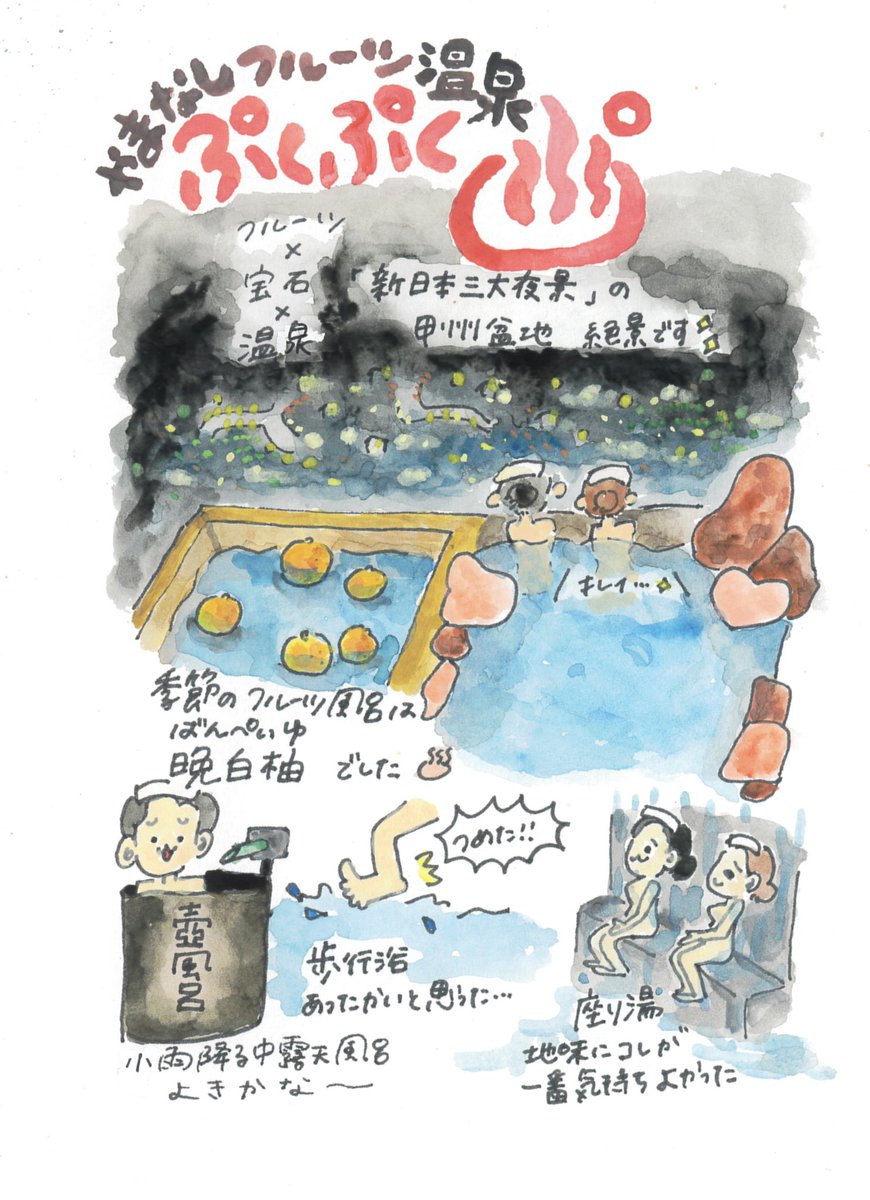 やまなしフルーツ温泉
ぷくぷく
フルーツ
×
宝石
×
温泉
「新日本三大夜景」の
甲州盆地 絶景です
キレイ…
季節のフルーツ風呂は
ばんぺいゆ
晩白柚 でした
つめた!!
壺風呂
歩行浴
あったかいと思った…
座り湯
地味にコレが
一番気持ちよかった
小雨降る中露天風呂
よきかな〜